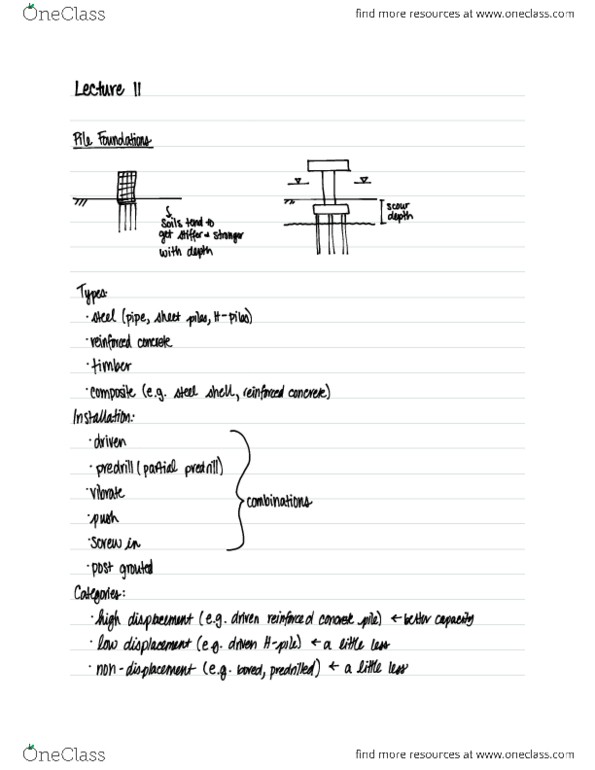 OneClass
find more resources at www.oneclass.com
Lecture 11
Pile Foundations
Soils tend to
get stiffer & stronger
with depth
scour
depth
Types:
· steel (pipe, sheet piles, H-piles)
· reinforced concrete
· timber
· composite (e.g. steel shell, reinforced concrete)
Installation:
· driven
· predrill (partial predrill)
· vibrate
· push
· screw in
combinations
· post grouted
Categories:
· high displacement (e.g. driven reinforced concrete pile) ← better capacity
· low displacement (e.g. driven H-pile) ← a little less
· non-displacement (e.g. bored, predrilled) ← a little less
OneClass
find more resources at www.oneclass.com